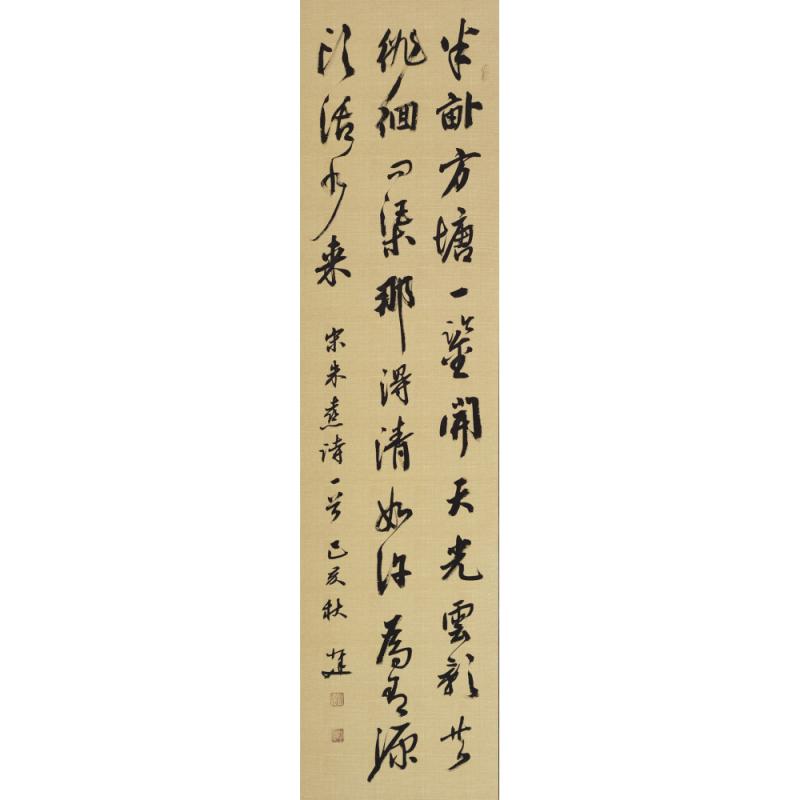 半畝方塘一鑒開天光雲影共
徘徊问渠那得清如许為有源
头活水来
宋朱熹诗一首己亥秋